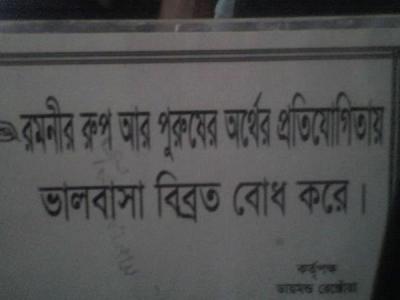 রমনীর রুপ আর পুরুষের অর্থের প্রতিযোগিতায়
ভালবাসা বিব্রত বোধ করে।
কর্তৃপক্ষ
ডায়মন্ড রেস্তোরা